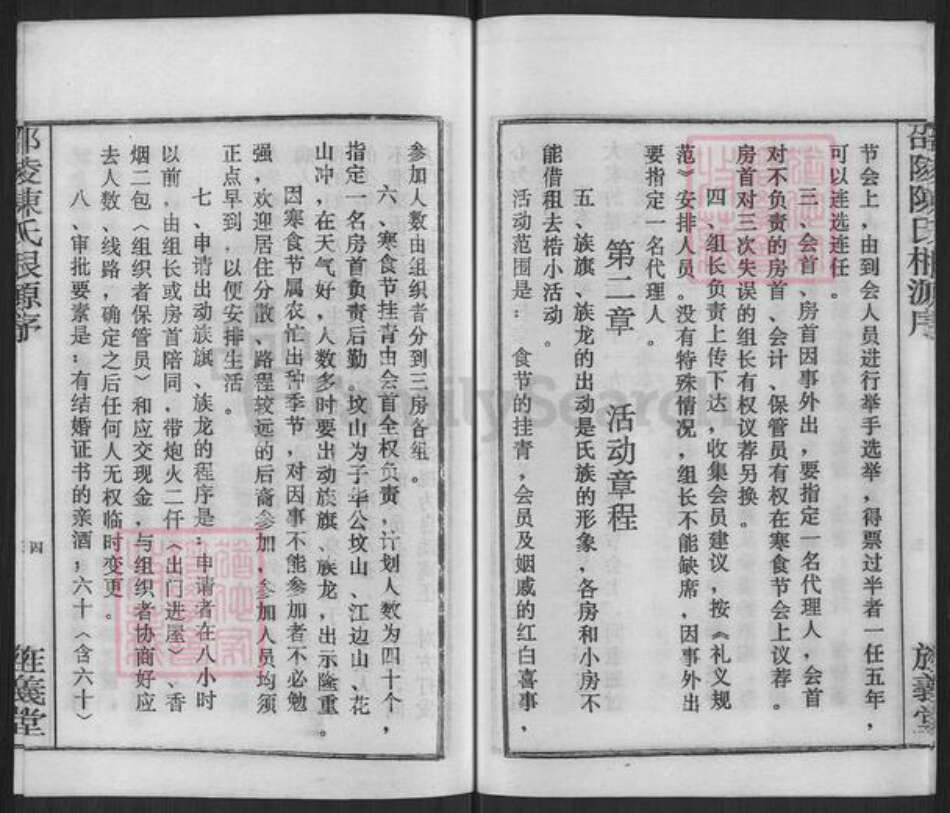 节会上，由到会人员进行举手选举，得票过半者一任五年，
可以连选连任。
三、会首、房首因事外出，要指定一名代理人，会首
对不负责的房首、会计、保管员有权在寒食节会上议荐。
房首对三次失误的组长有权议荐另换。
四、组长负责上传下达，收集会员建议，按《礼义规
范》安排人员。没有特殊情况，组长不能缺席，因事外出
要指定一名代理人。
第二章 活动章程
五、族旗、族龙的出动是氏族的形象，各房和小房不
能借租去梏小活动。
活动范围是：食节的挂青，会员及姻戚的红白喜事，
参加人数由组织者分到三房各组。
六、寒食节挂青由会首全权负责，计划人数为四十个，
指定一名房首负责后勤。坟山为于华公坟山、江边山、花
山冲，在天气好，人数多时要出动族旗、族龙，出示隆重。
因寒食节属农忙出种季节，对因事不能参加者不必勉
强，欢迎居住分散、路程较远的后裔参加，参加人员均须
正点早到，以便安排生活。
七、申请出动族旗、族龙的程序是：申请者在八小时
以前，由组长或房首陪同，带炮火二仟（出门进屋）、香
烟二包（组织者保管员）和应交现金，与组织者协商好应
去人数、线路，确定之后任何人无权临时变更。
八、审批要素是：有结婚证书的亲酒；六十（含六十）
邵陵陳氏根源序
四
旌義堂